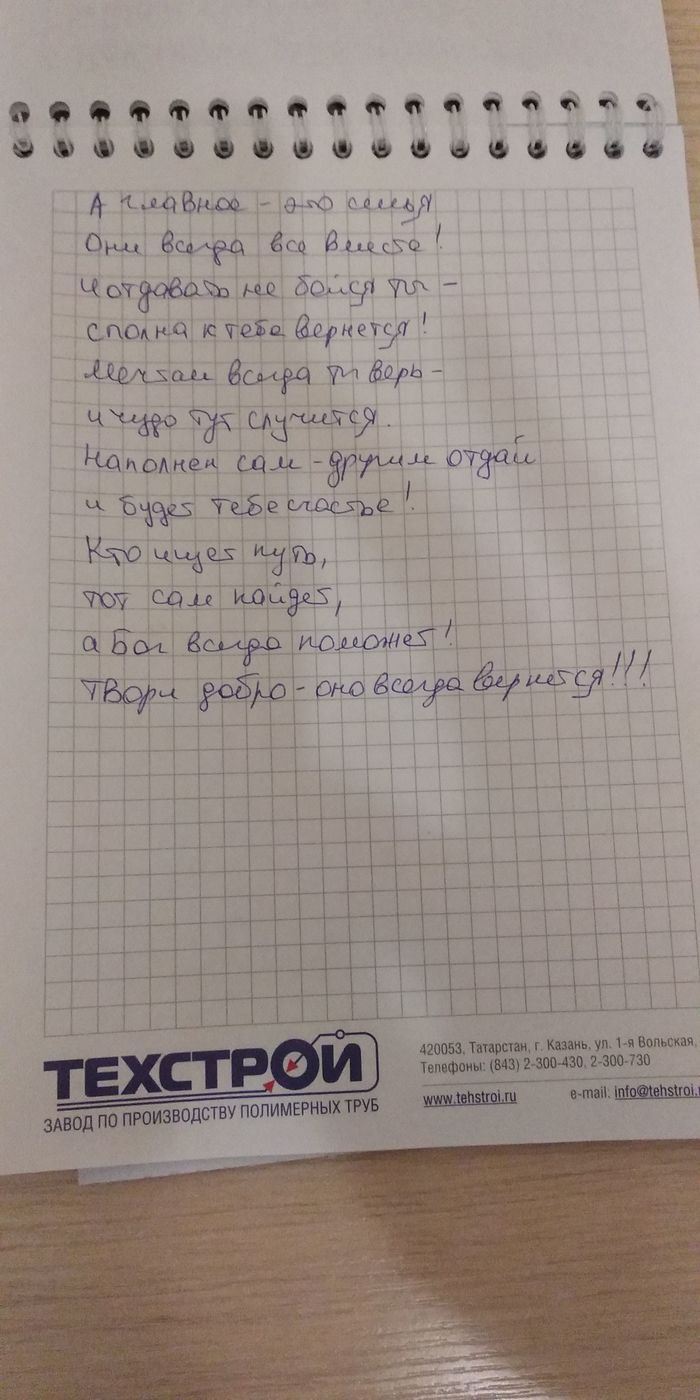 А главное - это семья
Они всегда все вместе!
И отдавать не бойся ты -
сполна к тебе вернется!
Мечтам всегда ты верь -
и чудо тут случится.
Наполнен сам - другим отдай
и будет тебе счастье!
Кто ищет путь,
тот сам найдет,
а Бог всегда поможет!
Твори добро - оно всегда вернется!!!
ТЕХСТРОЙ
ЗАВОД ПО ПРОИЗВОДСТВУ ПОЛИМЕРНЫХ ТРУБ
420053, Татарстан, г. Казань, ул. 1-я Вольская,
Телефоны: (843) 2-300-430, 2-300-730
www.tehstroi.ru e-mail: info@tehstroi.r